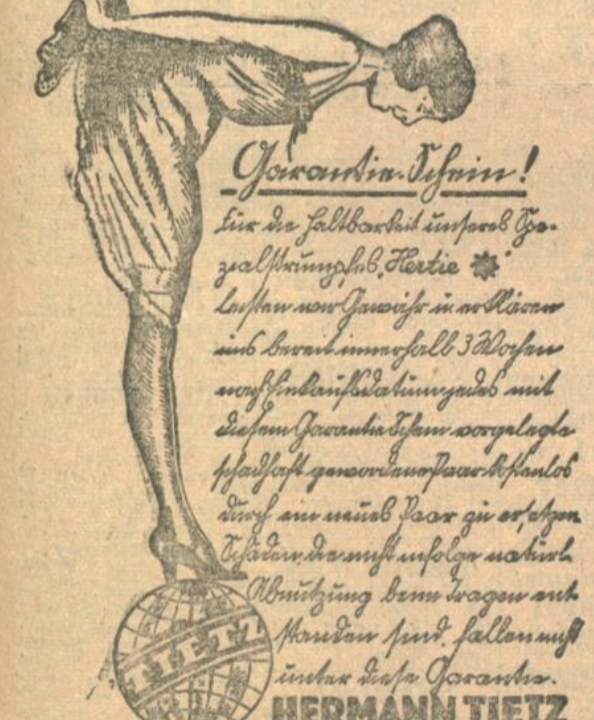 Garantie-Schein!
Für die Haltbarkeit unseres Spe-
zialstrumpfes „Hertie
leisten wir Gewähr u. erklären
uns bereit innerhalb 3 Wochen
nach Einkaufsdatum jedes mit
diesem Garantie Schein vorgelegte
schadhaft gewordene Paar kostenlos
durch ein neues Paar zu ersetzen
Schäden, die nicht infolge natürl.
Abnutzung beim Tragen ent-
standen sind, fallen nicht
unter diese Garantie.
TIETZ
HERMANN TIETZ